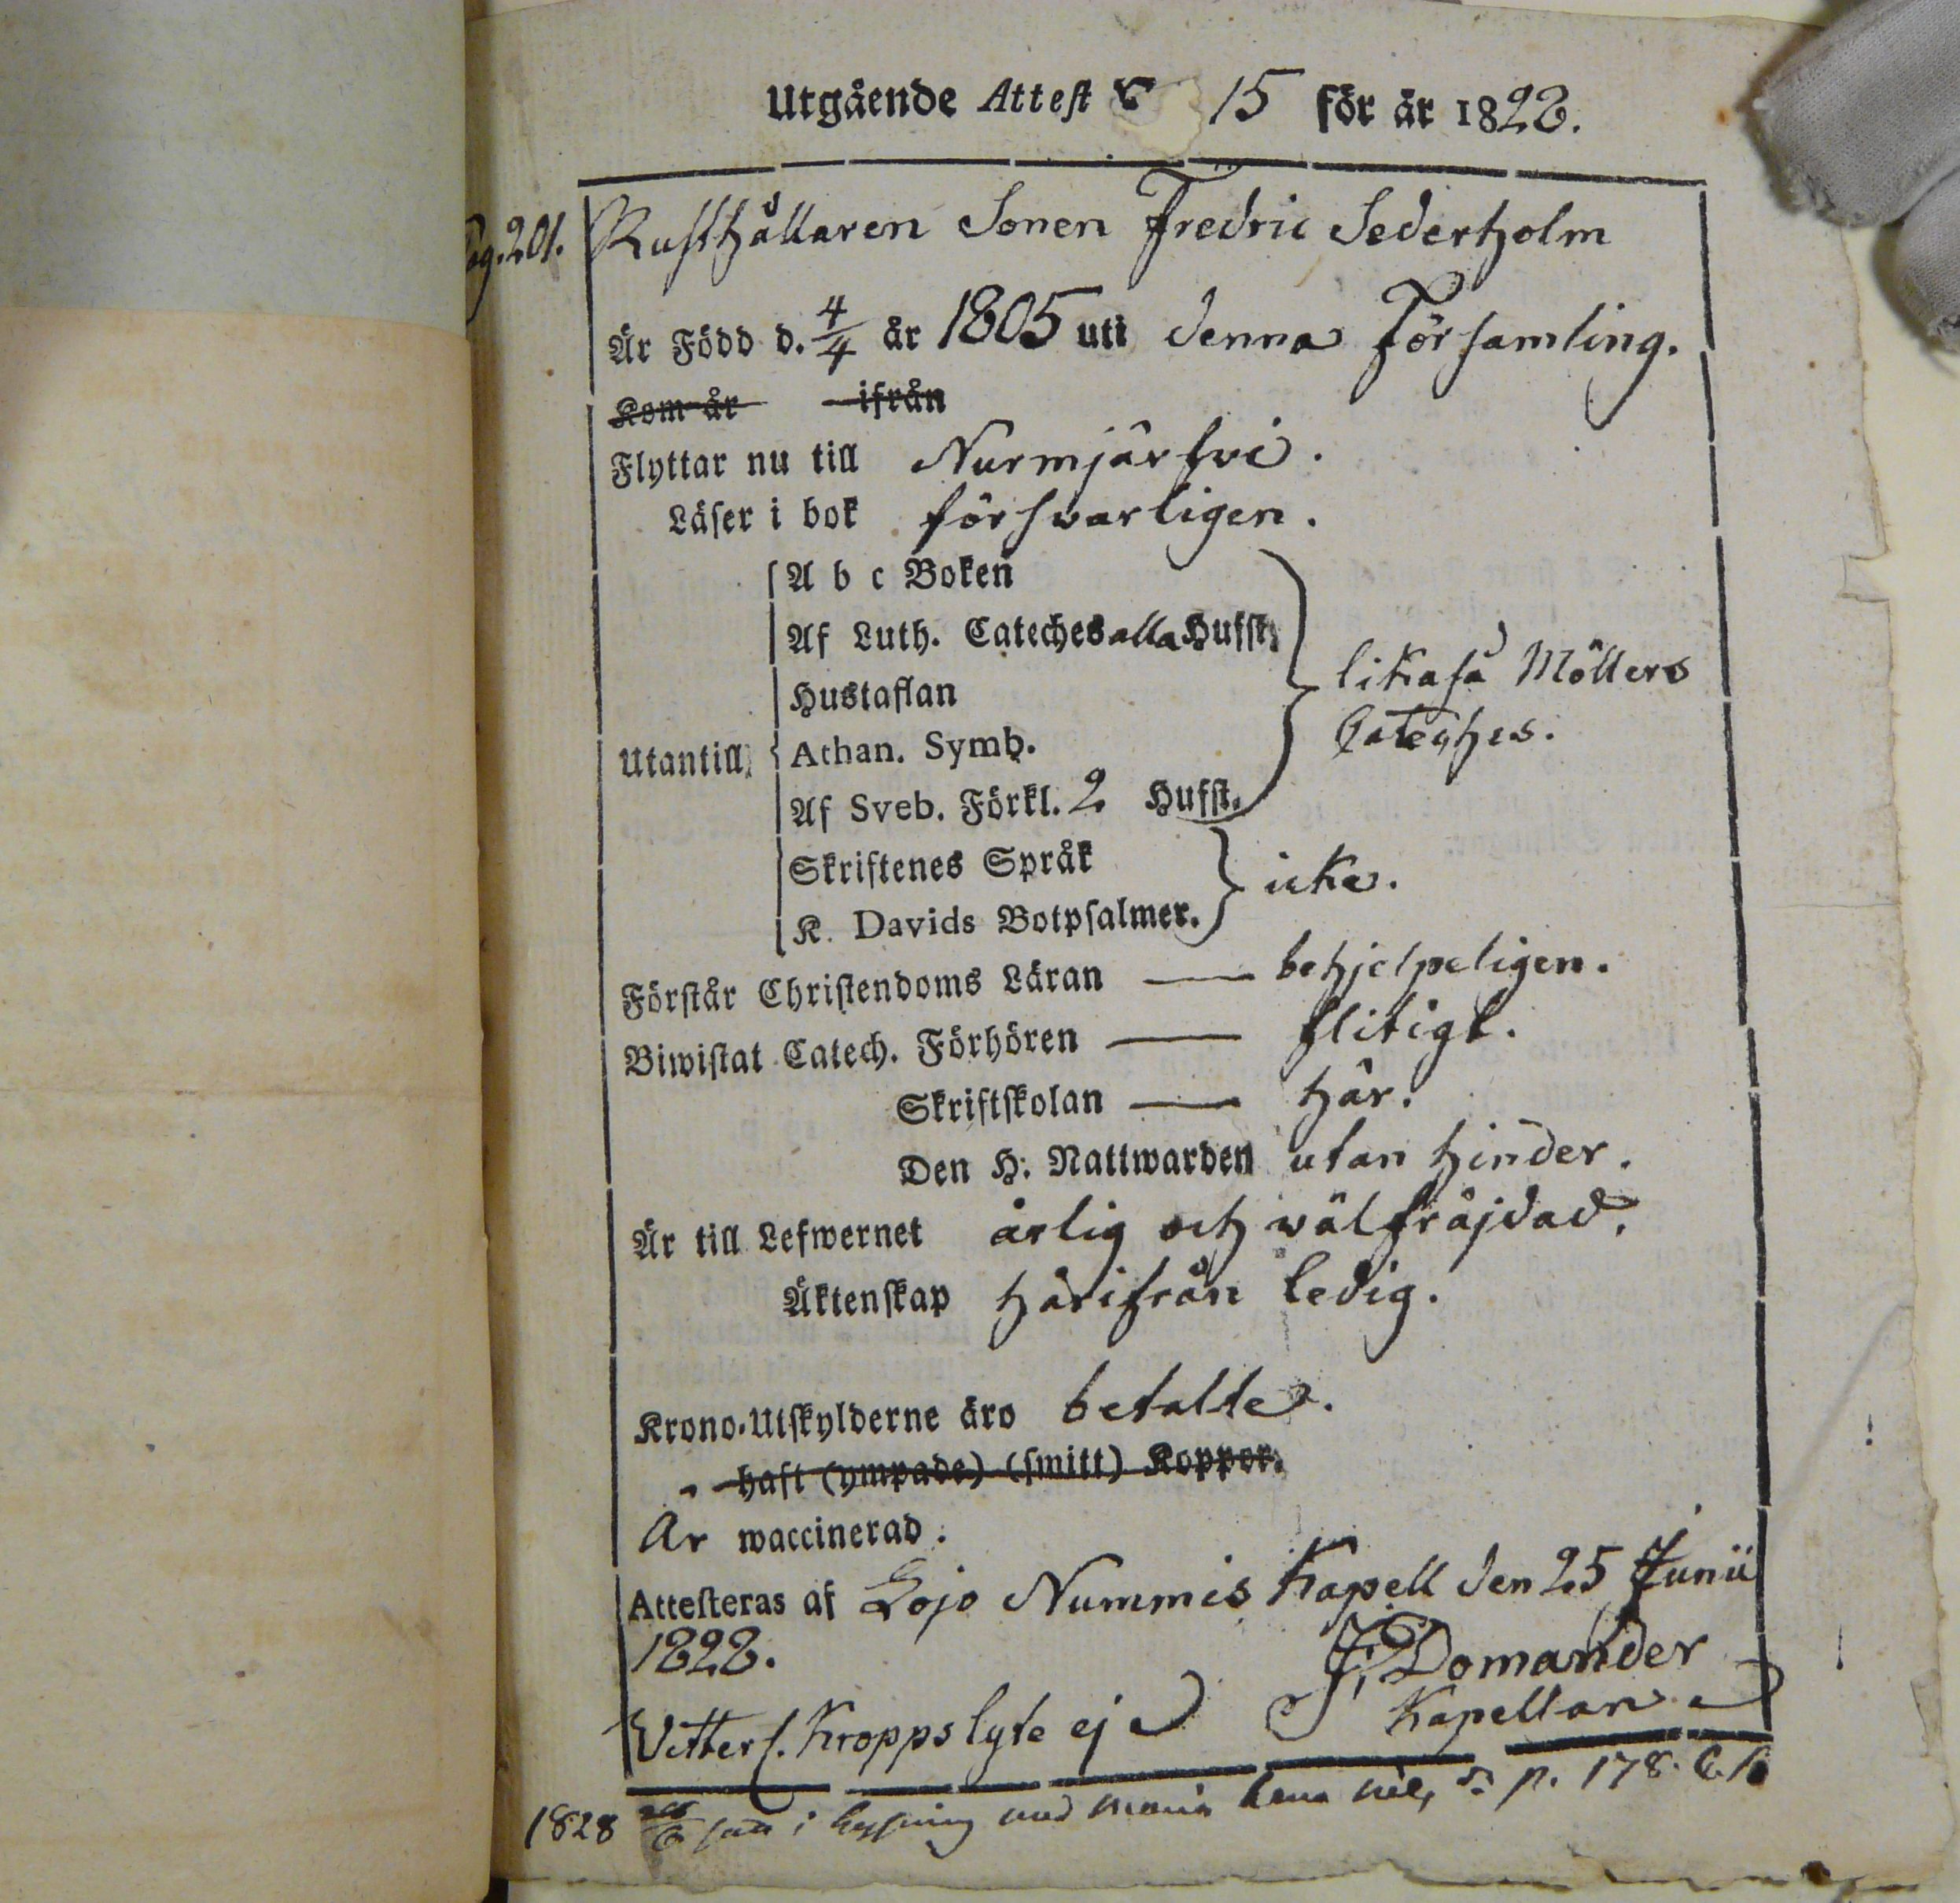 Utgående Attest N 15 för år 1828.
Pag. 201. Rusthållaren Sonen Fredric Sederholm
Är Född d. 4/4 år 1805 uti denna Församling.
Kom år ifrån
Flyttar nu till Nurmjärfvi.
Läser i bok försvarligen.
A b c Boken
Af Luth. Cateches alla Hufst.
Hustaflan
likaså Möllers
Cateches.
Utantill Athan. Symb.
Af Sveb. Förkl. 2 Hufst.
Skriftenes Språk
icke.
K. Davids Botpsalmer.
Förstår Christendoms Läran — behjelpeligen.
Biwistat Catech. Förhören — flitigt.
Skriftskolan — här.
Den H. Nattwarden utan hinder.
Är till Lefwernet ärlig och wälfräjdad.
Äktenskap härifrån ledig.
Krono-Utskylderne äro betalte.
haft (ympade) (smitt) Koppor.
Är waccinerad.
Attesteras af Lojo Nummis Kapell den 25 Junii
1828.
J. Domander
Kapellan
Vitterl. Kroppslyte ej
1828 i lysning med Maria p. 178.